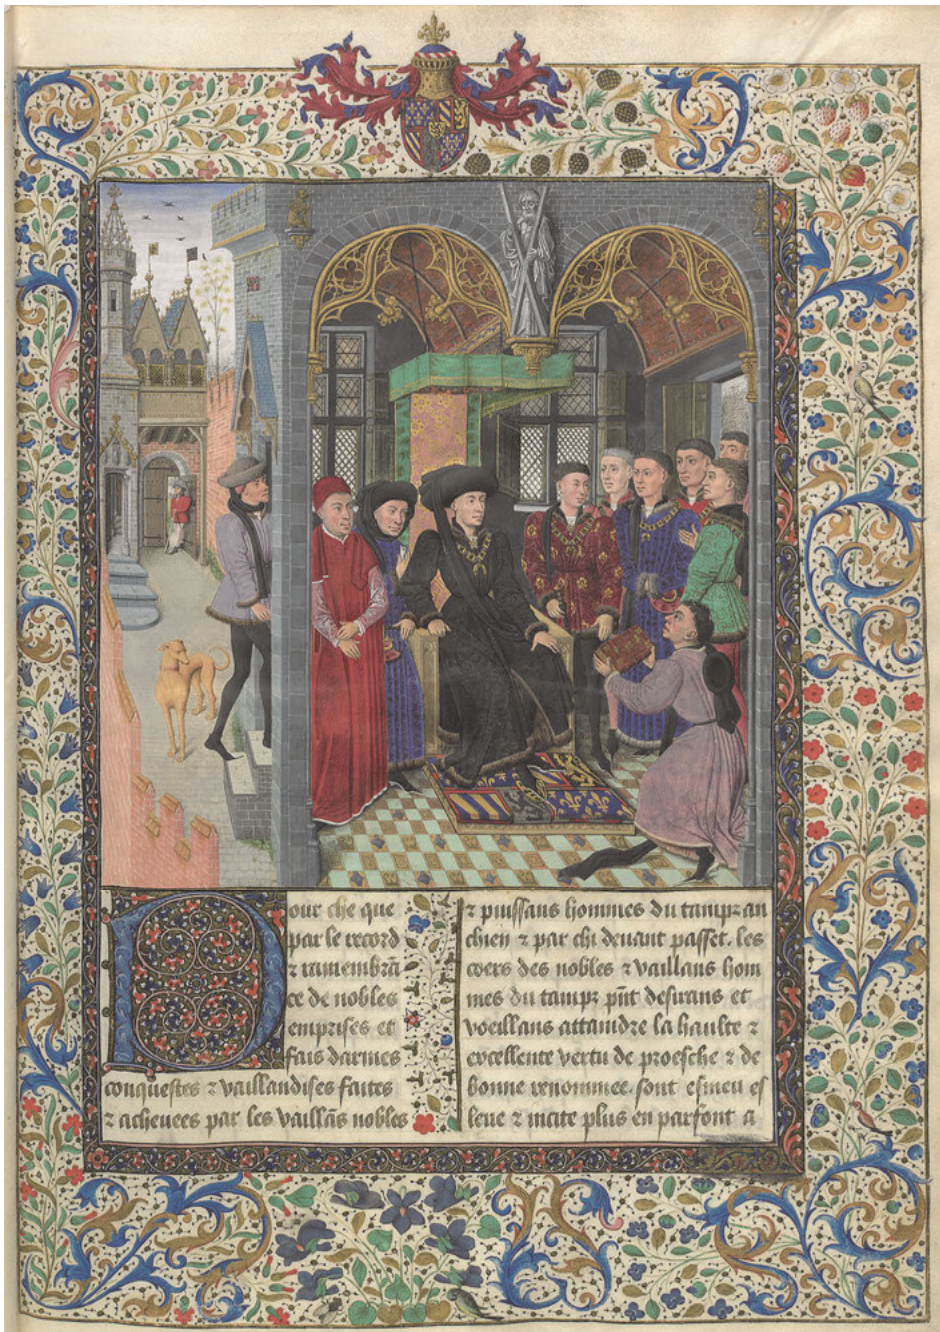 Pour che que
par le record
⁊ ramembrā
ce de nobles
emprises et
fais darmes
conquestes ⁊ vaillandises faites
⁊ achevees par les vaillās nobles
⁊ puissans hommes du tampz an
chien ⁊ par chi devant passet. les
coers des nobles ⁊ vaillans hom
mes du tampz pñt desirans et
voeillans attaindre la haulte ⁊
excellente vertu de proesche ⁊ de
bonne renommee. sont esmeu es
leue ⁊ incite plus en parfont a